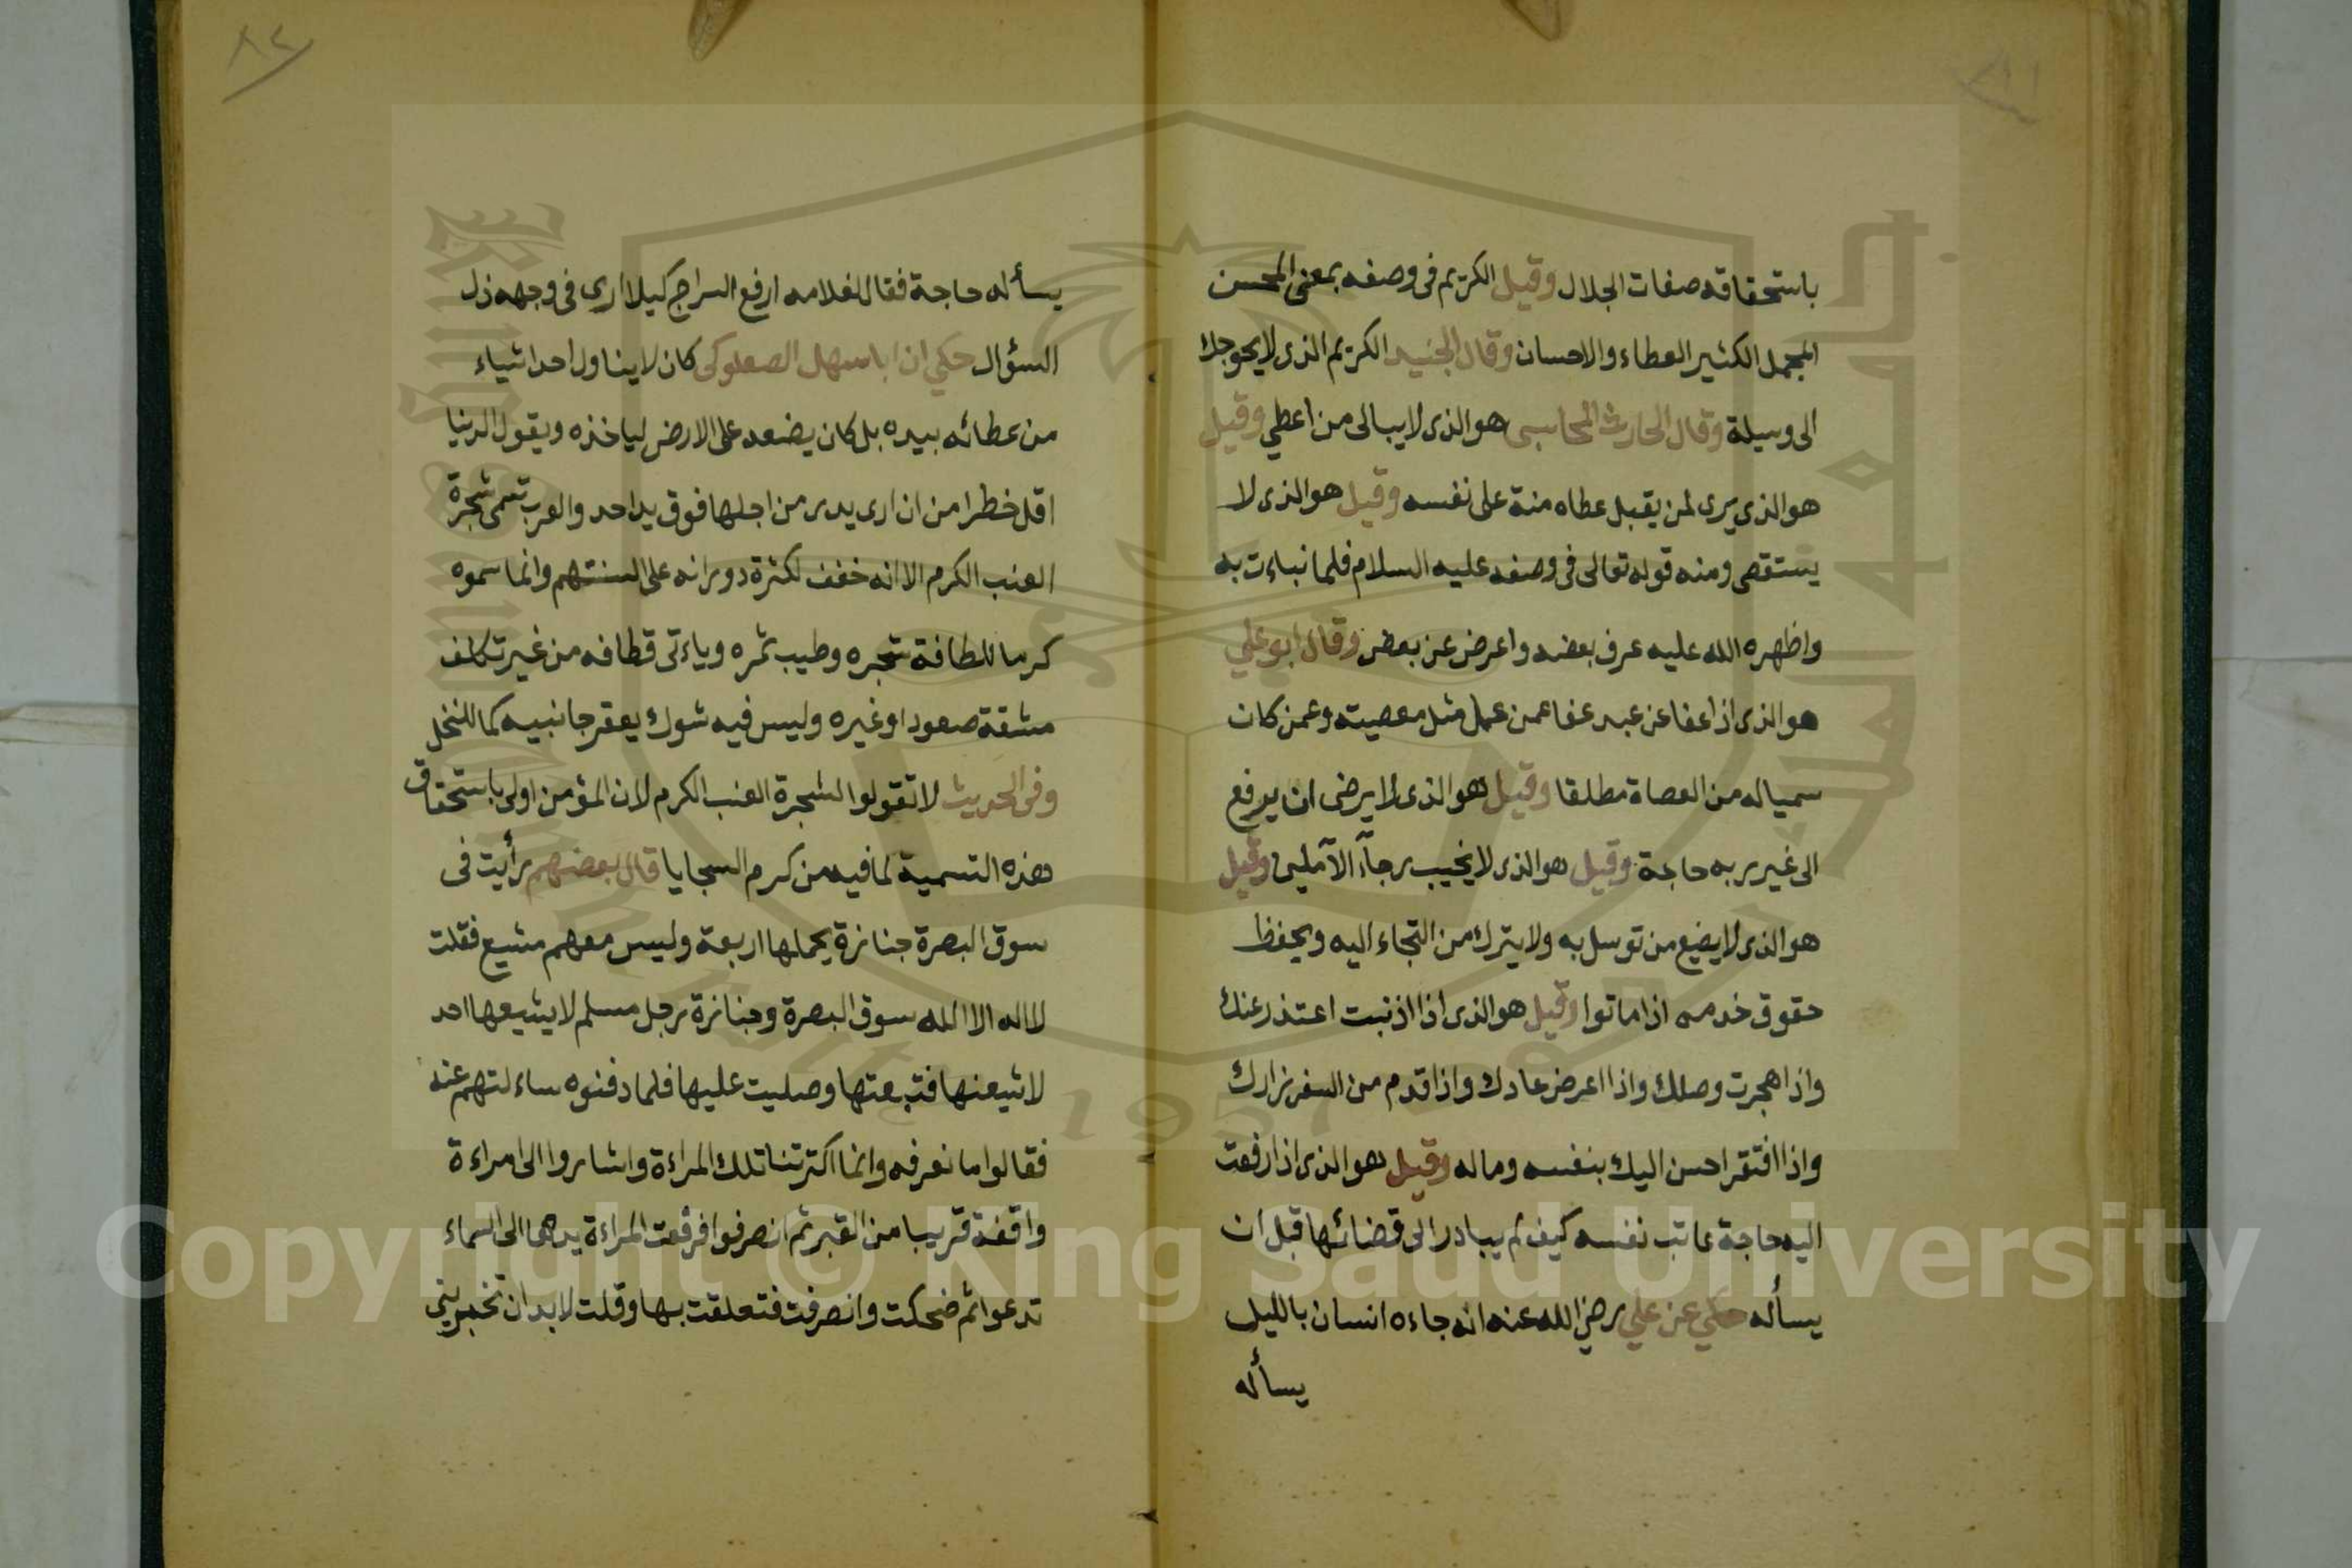 باستحقاقه صفات الجلال وقيل الكريم فى وصفه بمعنى المحسن
المجمل الكثير العطاء والاحسان وقال الجنيد الكريم الذى لا يحوجك
الى وسيلة وقال الحارث المحاسبى هو الذى لا يبالى من اعطي وقيل
هو الذى يرى لمن يقبل عطاه منة على نفسه وقيل هو الذى لا
يستقصى ومنه قوله تعالى فى وصفه عليه السلام فلما نباءت به
واظهره الله عليه عرف بعضه واعرض عن بعض وقال ابو علي
هو الذى اذا عفا عن عبد عفا عمن عمل مثل معصيته وعمن كان
سمياله من العصاة مطلقا وقيل هو الذى لا يرضى ان يرفع
الى غيره به حاجة وقيل هو الذى لا يخيب رجآء الآملين وقيل
هو الذى لا يضيع من توسل به ولا يترك من التجاء اليه ويحفظ
حقوق خدمه اذا ماتوا وقيل هو الذى اذا اذنبت اعتذر عنك
واذا هجرت وصلك واذا اعرض عادك واذا قدم من السفر زارك
واذا افتقر احسن اليك بنفسه وماله وقيل هو الذى اذا رفعت
اليه حاجة عاتب نفسه كيف لم يبادر الى قضائها قبل ان
يسأله حكي عن علي رضي الله عنه انه جاءه انسان بالليل
يسأله
٨٢
يسأله حاجة فقال لغلامه ارفع السراج كيلا ارى فى وجهه ذل
السؤال حكي ان اباسهل الصعلوكى كان لا يناول احدا شياء
من عطائه بيده بل كان يضعه على الارض لياخذه ويقول الدنيا
اقل خطرا من ان ارى يدى من اجلها فوق يد احد والعرب تسمى شجرة
العنب الكرم الا انه خفف لكثرة دورانه على السنتهم وانما سموه
كرما للطافة شجره وطيب ثمره وياءتى قطافه من غير تكلف
مشقة صعود او غيره وليس فيه شوك يعقر جانبيه كما للنخل
وفى الحديث لا تقولوا الشجرة العنب الكرم لان المؤمن اولى باستحقاق
هذه التسمية لما فيه من كرم السجايا قال بعضهم رأيت فى
سوق البصرة جنازة يحملها اربعة وليس معهم مشيع فقلت
لا اله الا الله سوق البصرة وجنازة رجل مسلم لا يشيعها احد
لاشيعنها فتبعتها وصليت عليها فلما دفنوه ساءلتهم عنه
فقالوا ما نعرفه وانما اكترتنا تلك المراءة واشاروا الى امراءة
واقفة قريبا من القبر ثم انصرفوا فرفعت المراءة يدها الى السماء
تدعوا ثم ضحكت وانصرفت فتعلقت بها وقلت لا بد ان تخبريني
Copyright © King Saud University
1957